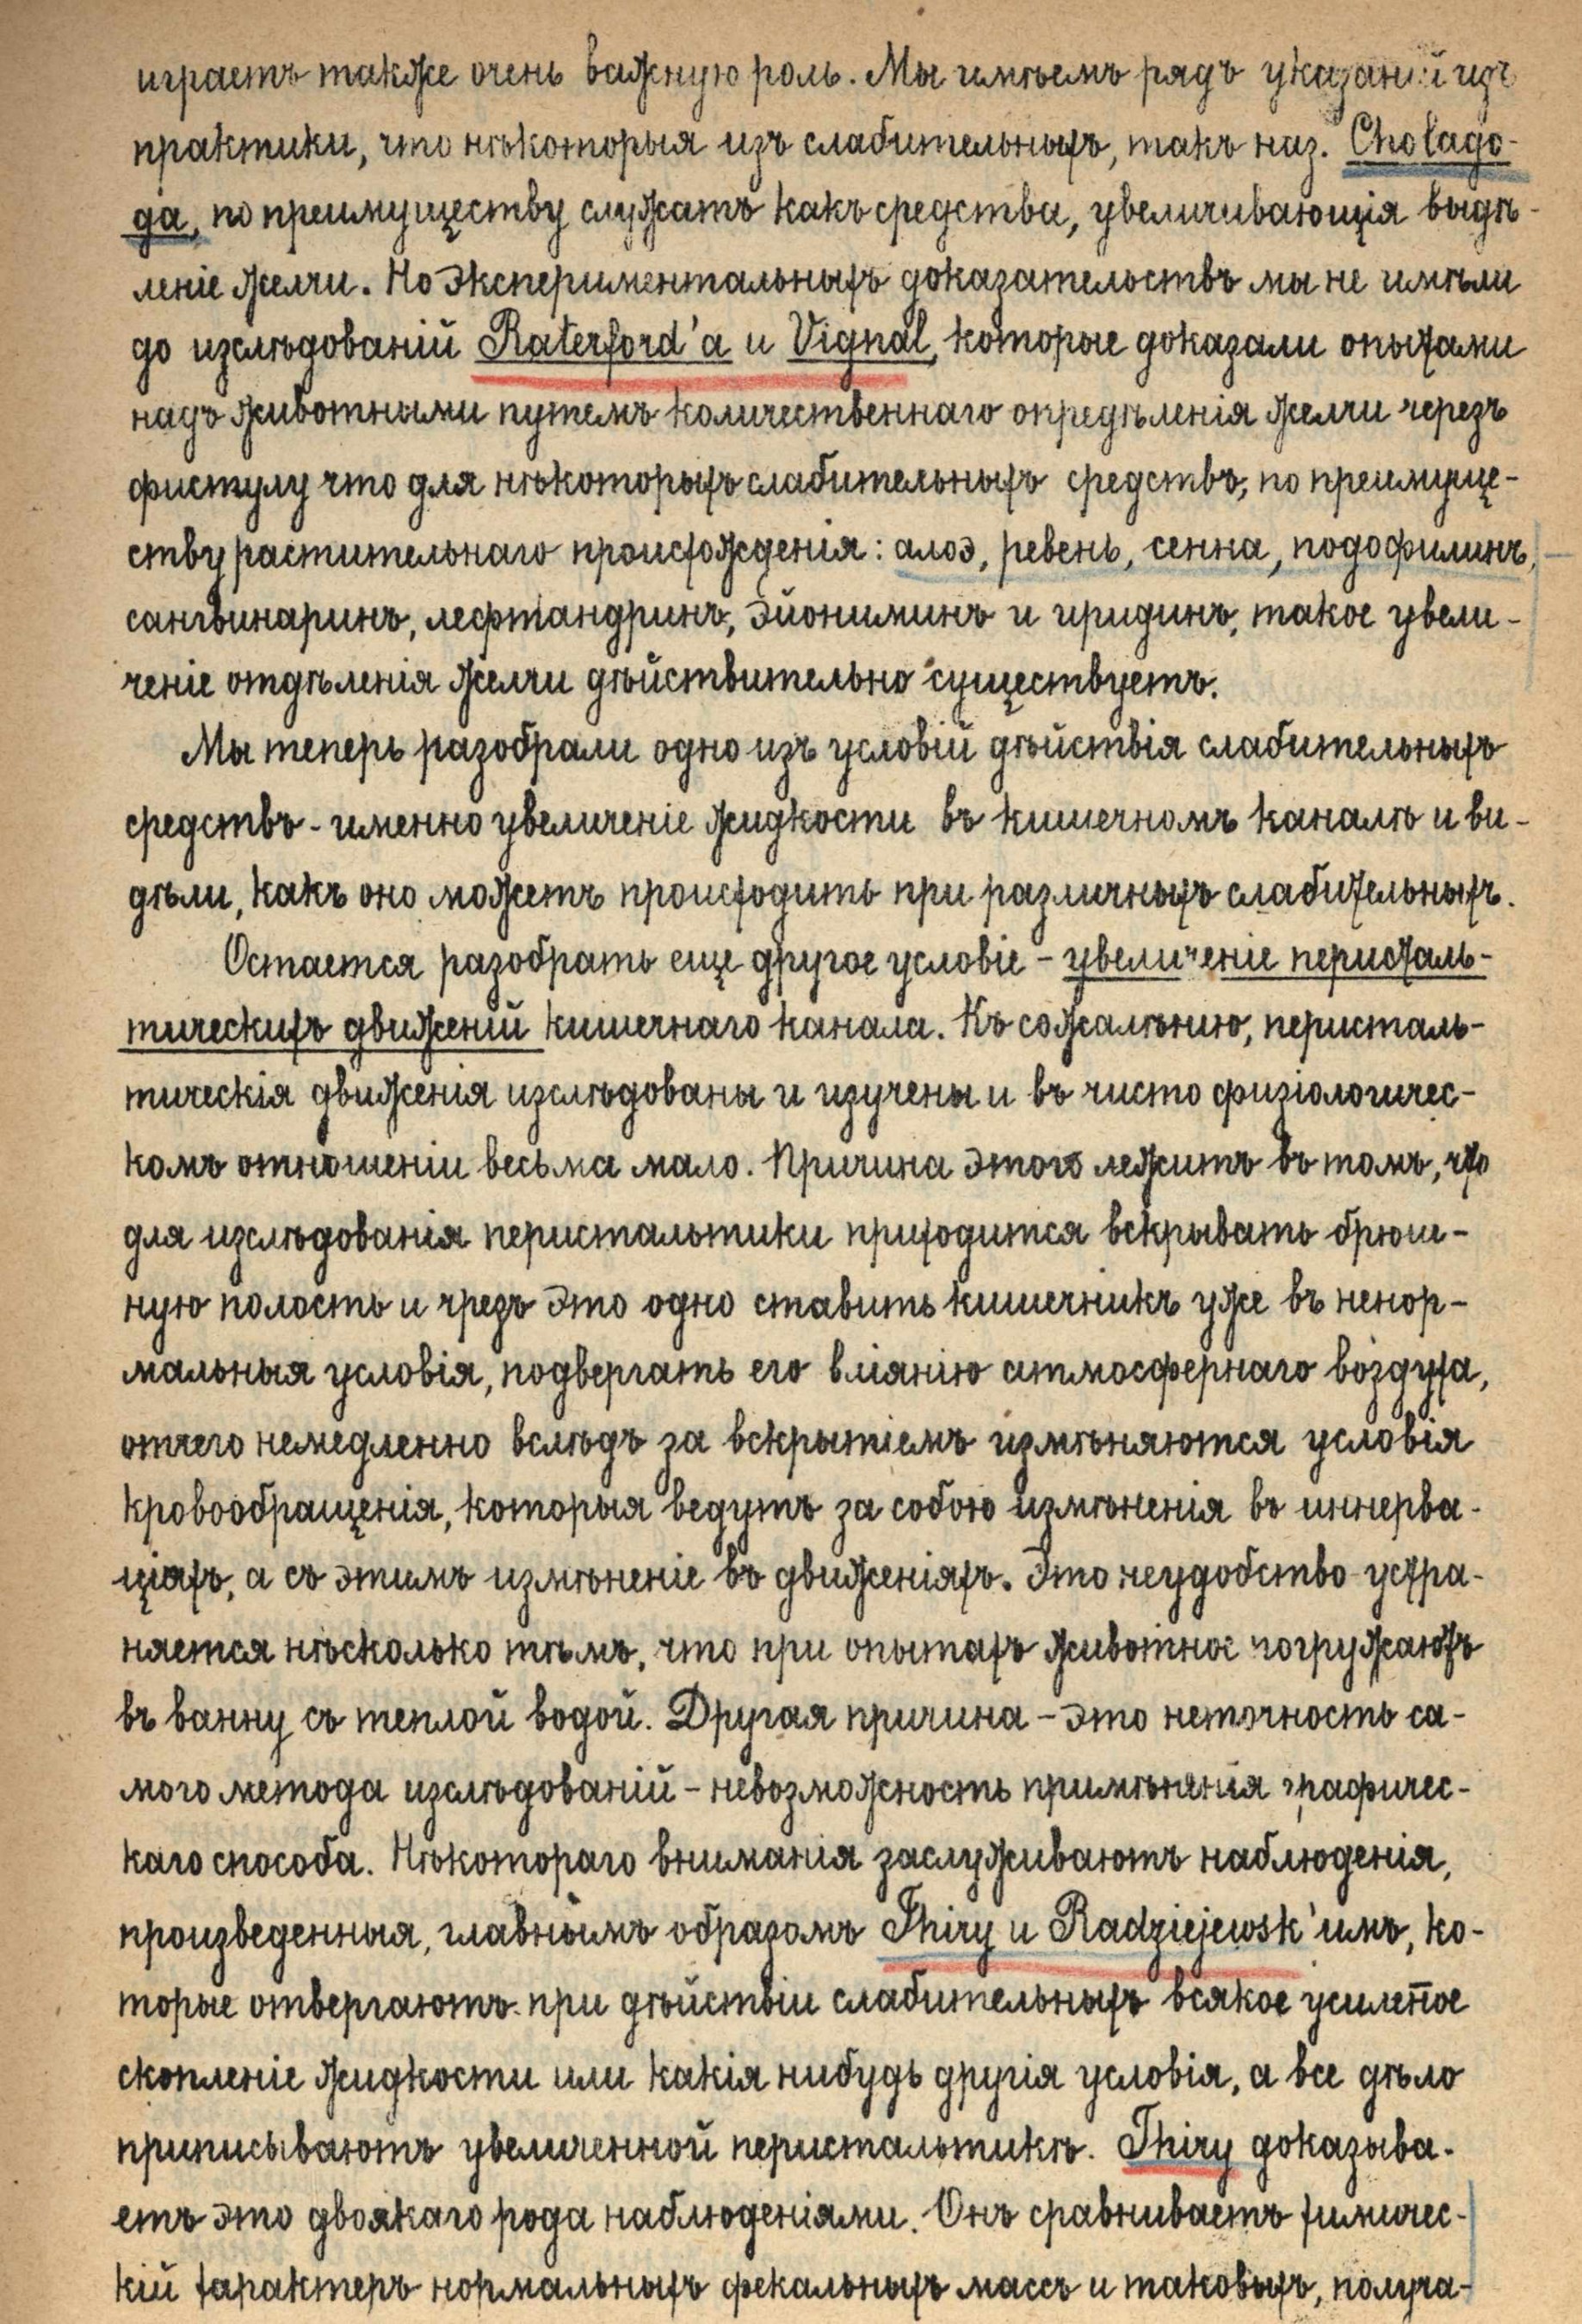 играетъ также очень важную роль. Мы имѣемъ рядъ указаній изъ
практики, что нѣкоторыя изъ слабительныхъ, такъ наз. Cholago-
ga, по преимуществу служатъ какъ средства, увеличивающія выдѣ-
леніе желчи. Но экспериментальныхъ доказательствъ мы не имѣли
до изслѣдованій Raterford'a и Vignal, которые доказали опытами
надъ животными путемъ количественнаго опредѣленія желчи черезъ
фистулу что для нѣкоторыхъ слабительныхъ средствъ, по преимуще-
ству растительнаго происхожденія: алоэ, ревень, сенна, подофилинъ,
сангвинаринъ, лефтандринъ, эйониминъ и иридинъ, такое увели-
ченіе отдѣленія желчи дѣйствительно существуетъ.
Мы теперь разобрали одно изъ условій дѣйствія слабительныхъ
средствъ - именно увеличеніе жидкости въ кишечномъ каналѣ и ви-
дѣли, какъ оно можетъ происходить при различныхъ слабительныхъ.
Остается разобрать еще другое условіе - увеличеніе перисталь-
тическихъ движеній кишечнаго канала. Къ сожалѣнію, перисталь-
тическія движенія изслѣдованы и изучены и въ чисто физіологичес-
комъ отношеніи весьма мало. Причина этого лежитъ въ томъ, что
для изслѣдованія перистальтики приходится вскрывать брюш-
ную полость и чрезъ это одно ставить кишечникъ уже въ ненор-
мальныя условія, подвергать его вліянію атмосфернаго воздуха,
отчего немедленно вслѣдъ за вскрытіемъ измѣняются условія
кровообращенія, которыя ведутъ за собою измѣненія въ иннерва-
ціяхъ, а съ этимъ измѣненіе въ движеніяхъ. Это неудобство устра-
няется нѣсколько тѣмъ, что при опытахъ животное погружаютъ
въ ванну съ теплой водой. Другая причина - это неточность са-
мого метода изслѣдованій - невозможность примѣненія графичес-
каго способа. Нѣкотораго вниманія заслуживаютъ наблюденія,
произведенныя, главнымъ образомъ Thiry и Radziejewsk'имъ, ко-
торые отвергаютъ при дѣйствіи слабительныхъ всякое усилен̅ое
скопленіе жидкости или какія нибудь другія условія, а все дѣло
приписываютъ увеличенной перистальтикѣ. Thiry доказыва-
етъ это двоякаго рода наблюденіями. Онъ сравниваетъ химичес-
кій характеръ нормальныхъ фекальныхъ массъ и таковыхъ, получа-